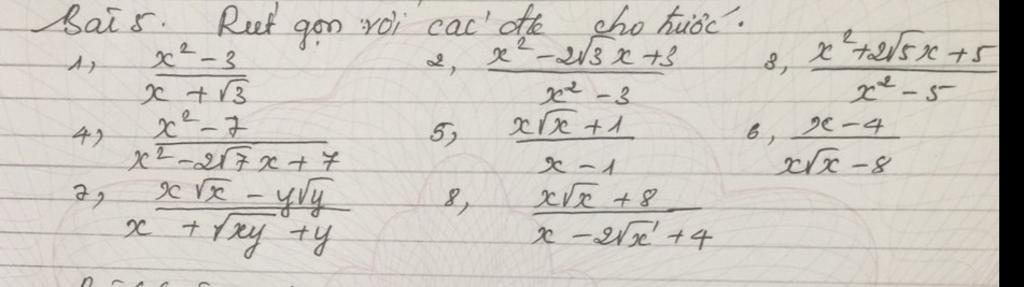 Bài 5. Rút gọn với các đk cho trước.
1, (x² - 3)/(x + √3) 2, (x² - 2√3x + 3)/(x² - 3) 3, (x² + 2√5x + 5)/(x² - 5)
4, (x² - 7)/(x² - 2√7x + 7) 5, (x√x + 1)/(x - 1) 6, (x - 4)/(x√x - 8)
7, (x√x - y√y)/(x + √xy + y) 8, (x√x + 8)/(x - 2√x + 4)